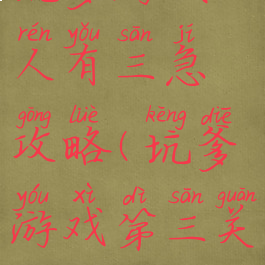 rén yǒu sān jí
人有三急
gōng lüè kēng diē
攻略(坑爹
yóu xì dì sān guān
游戏第三关